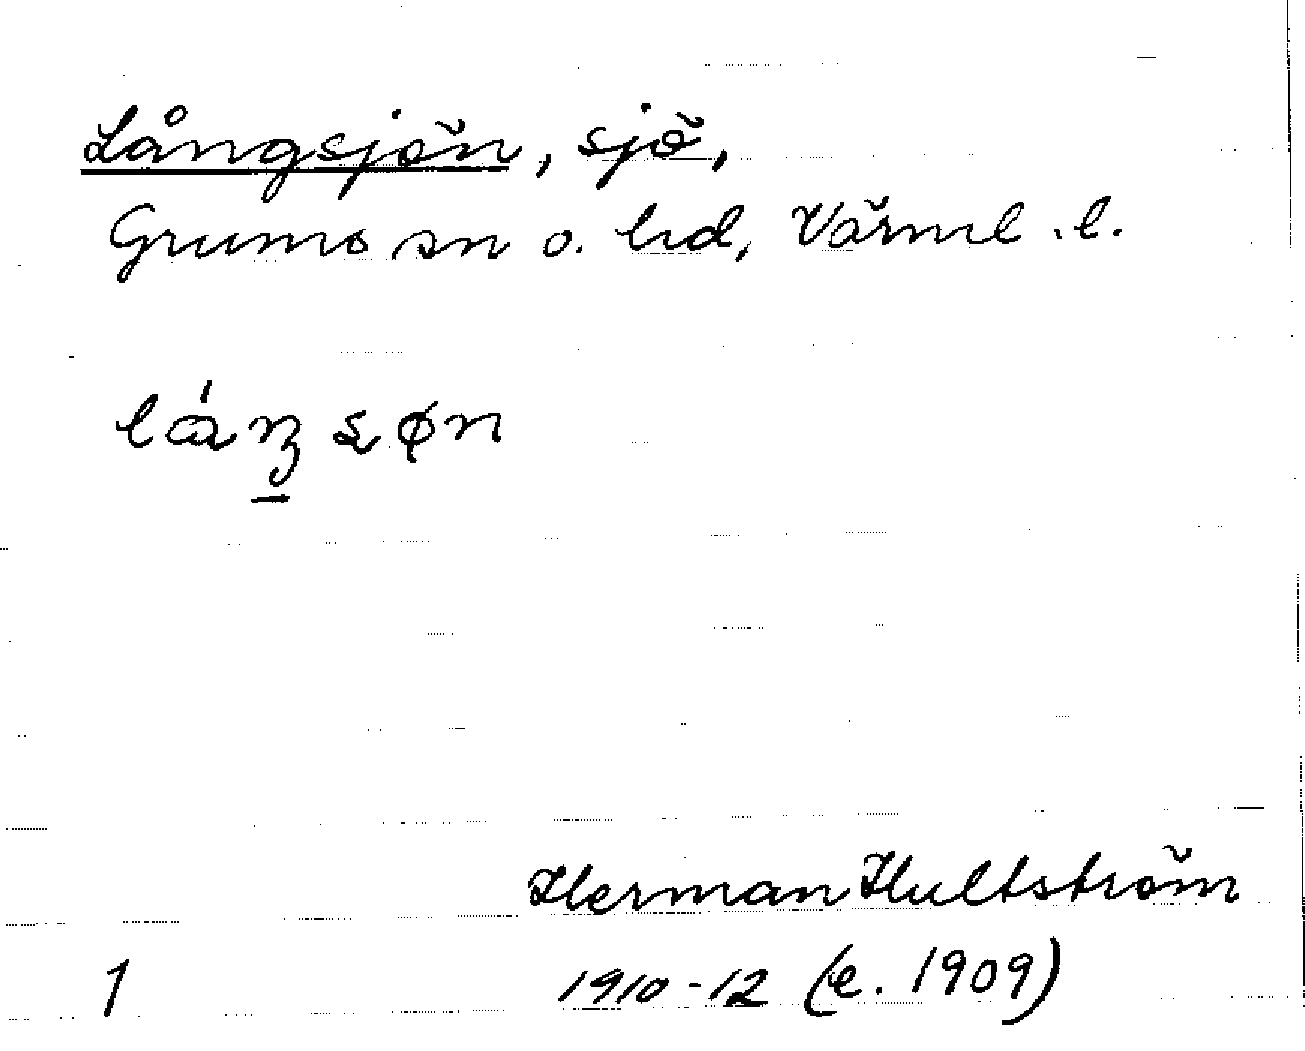 Långsjön, sjö,
Grums sn o. hd, Värml. l.
Herman Hultström
1 1910-12 (e. 1909)